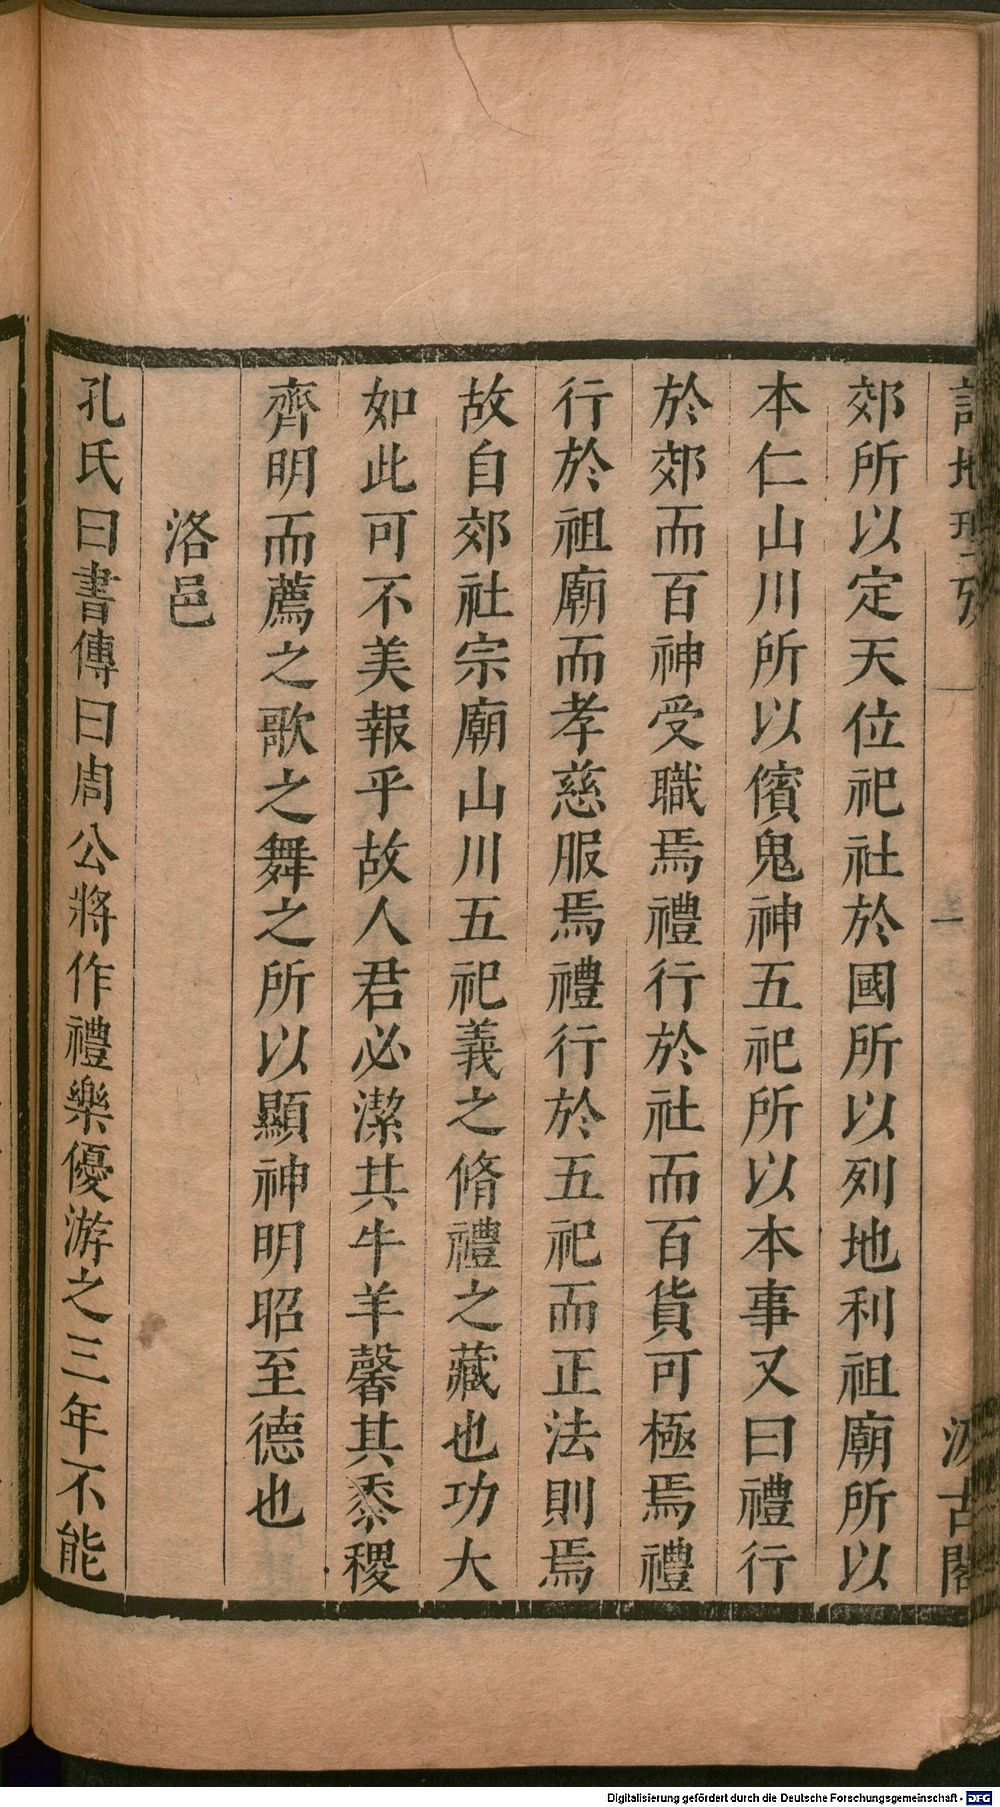 詩地理攷 一 汲古閣
郊所以定天位祀社於國所以列地利祖廟所以
本仁山川所以儐鬼神五祀所以本事又曰禮行
於郊而百神受職焉禮行於社而百貨可極焉禮
行於祖廟而孝慈服焉禮行於五祀而正法則焉
故自郊社宗廟山川五祀義之脩禮之藏也功大
如此可不美報乎故人君必潔其牛羊馨其黍稷
齊明而薦之歌之舞之所以顯神明昭至德也
洛邑
孔氏曰書傳曰周公將作禮樂優游之三年不能
Digitalisierung gefördert durch die Deutsche Forschungsgemeinschaft - DFG